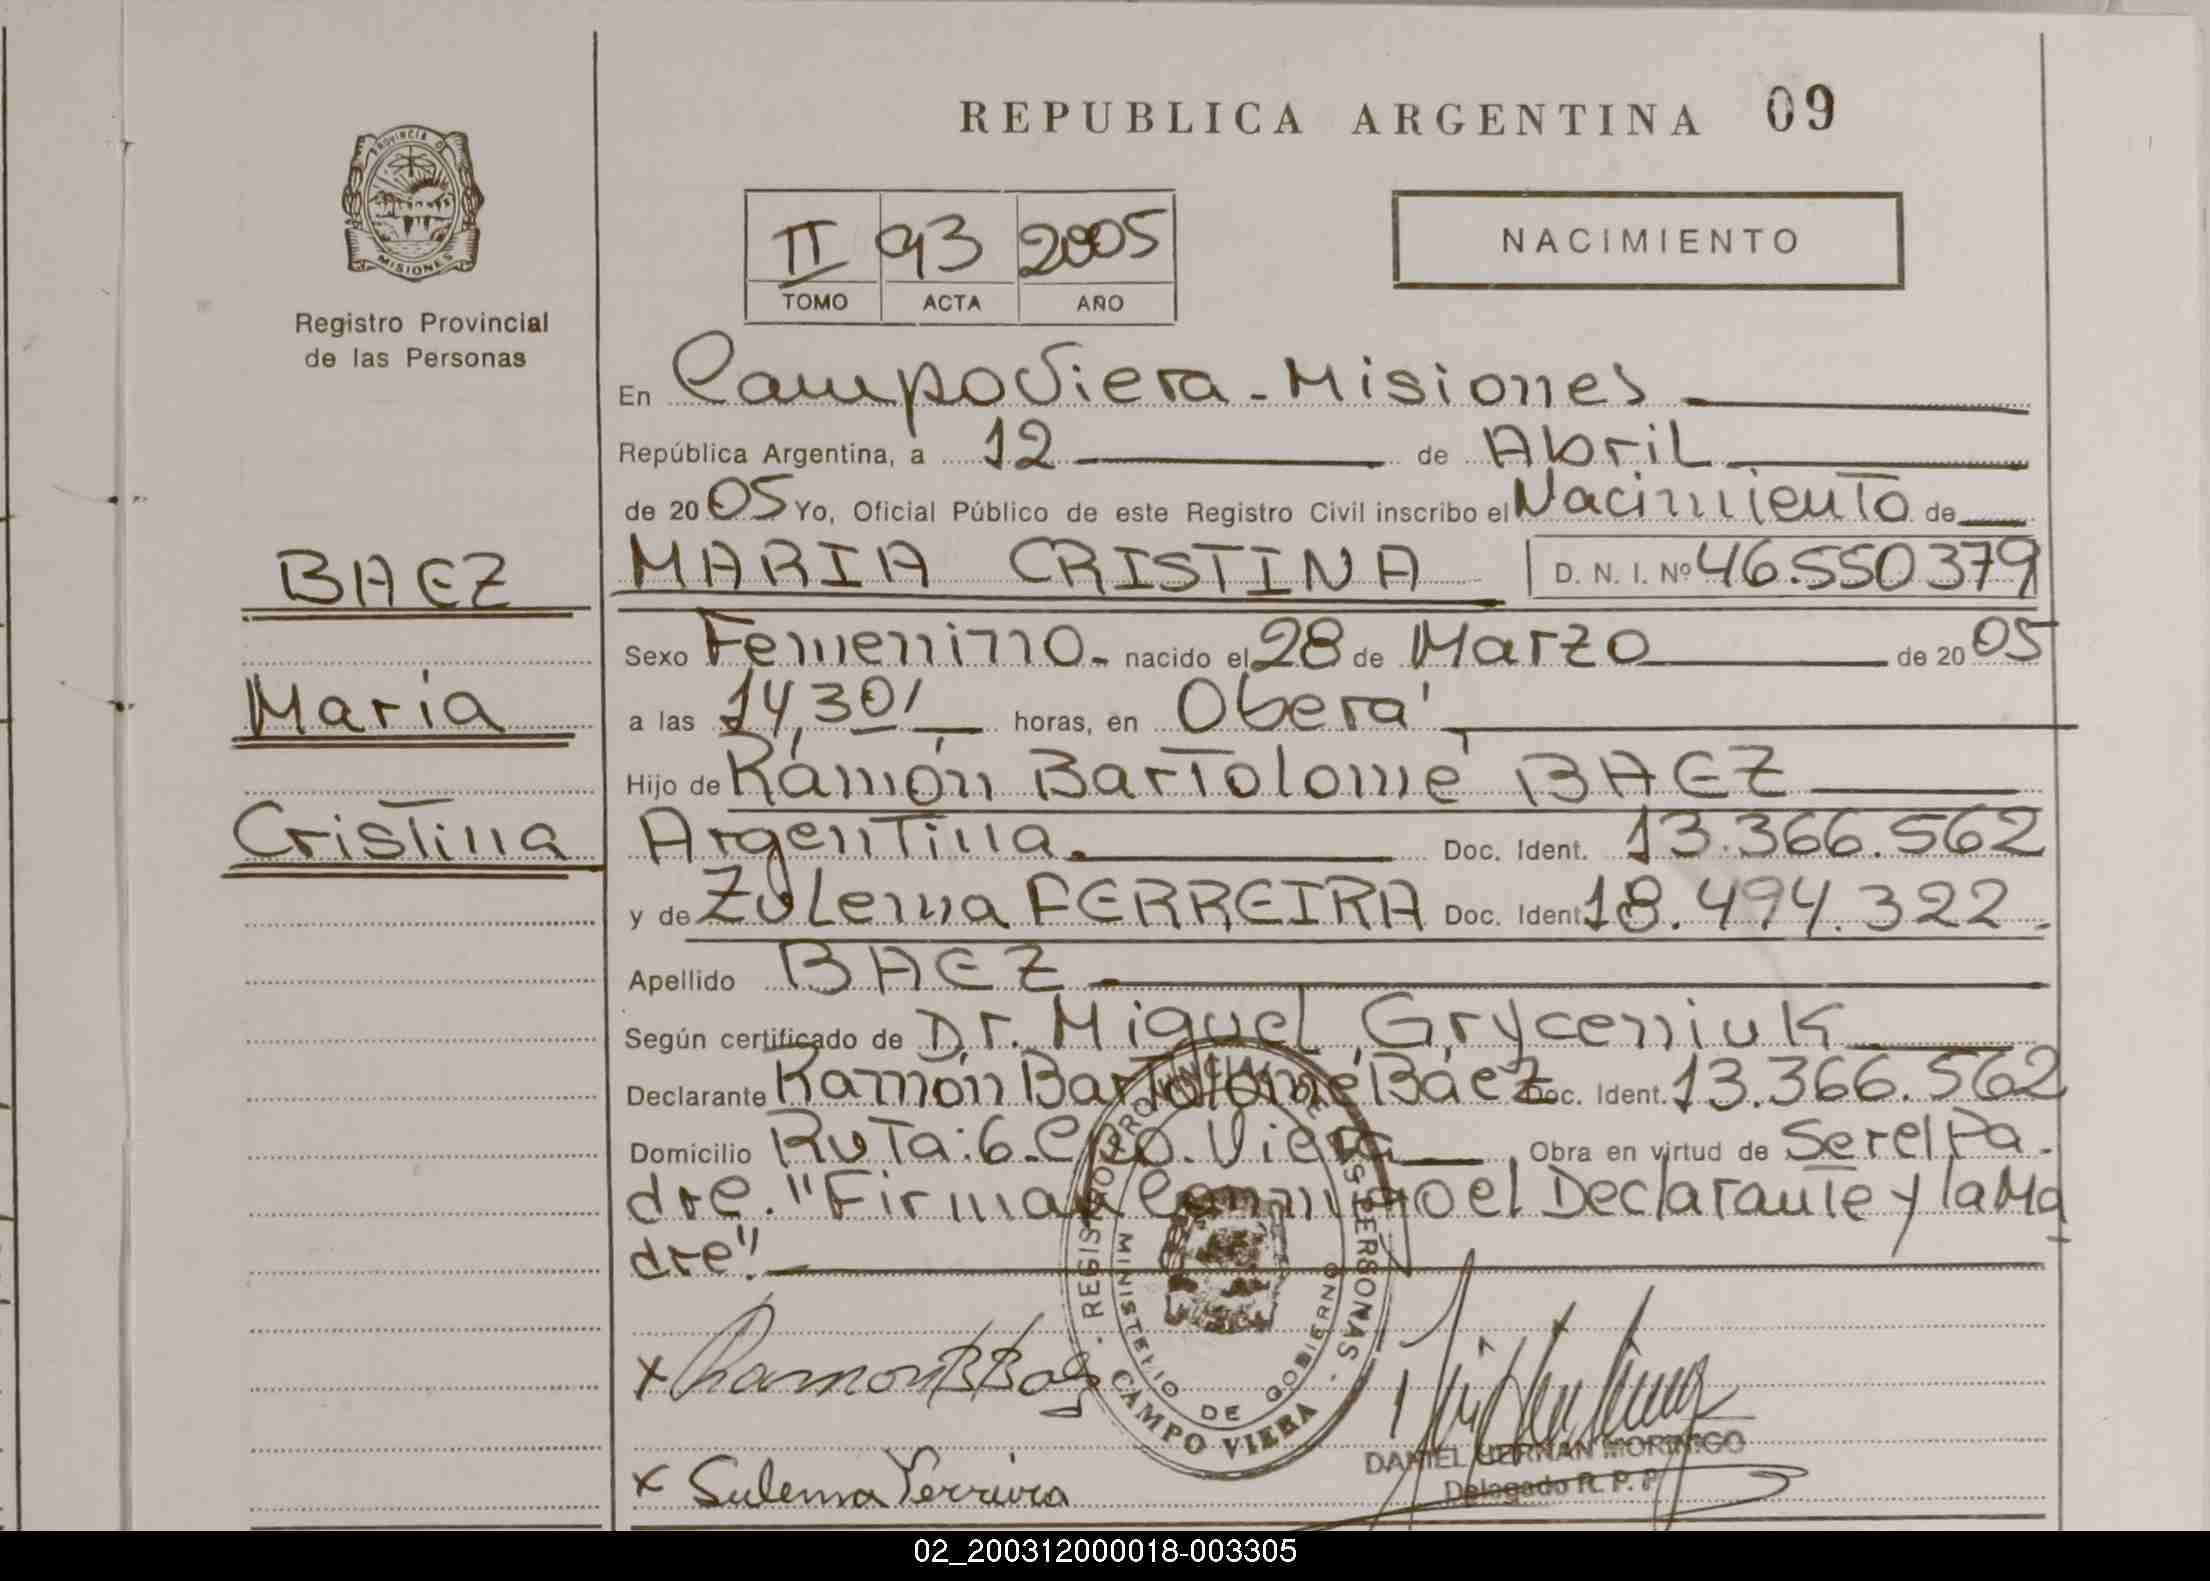 REPUBLICA ARGENTINA 09
PROVINCIA D
MISIONES
Registro Provincial
de las Personas
II 93 2005
TOMO ACTA AÑO
NACIMIENTO
En Campo Viera - Misiones
República Argentina, a 12 de Abril
de 2005 Yo, Oficial Público de este Registro Civil inscribo el Nacimiento de
BAEZ
MARIA CRISTINA D. N. I. Nº 46.550379
Sexo Femenino - nacido el 28 de Marzo de 2005
María
a las 14,30' horas, en Oberá
Hijo de Ramón Bartolomé BAEZ
Cristina
Argentina. Doc. Ident. 13.366.562
y de Zulema FERREIRA Doc. Ident. 18.494.322.
Apellido BAEZ
Según certificado de Dr. Miguel Gryceniuk
Declarante Ramón Bartolomé Báez Doc. Ident. 13.366.562
Domicilio Ruta: 6. Cpo. Viera Obra en virtud de Ser el Pa-
dre. "Firman Conmigo el Declarante y la Ma
dre".
REGISTRO PROVINCIAL DE LAS PERSONAS
MINISTERIO DE GOBIERNO
CAMPO VIERA
x Ramon B Baez
x Sulema Ferreira
DANIEL HERNAN MORINIGO
Delegado R. P. P.
02_200312000018-003305